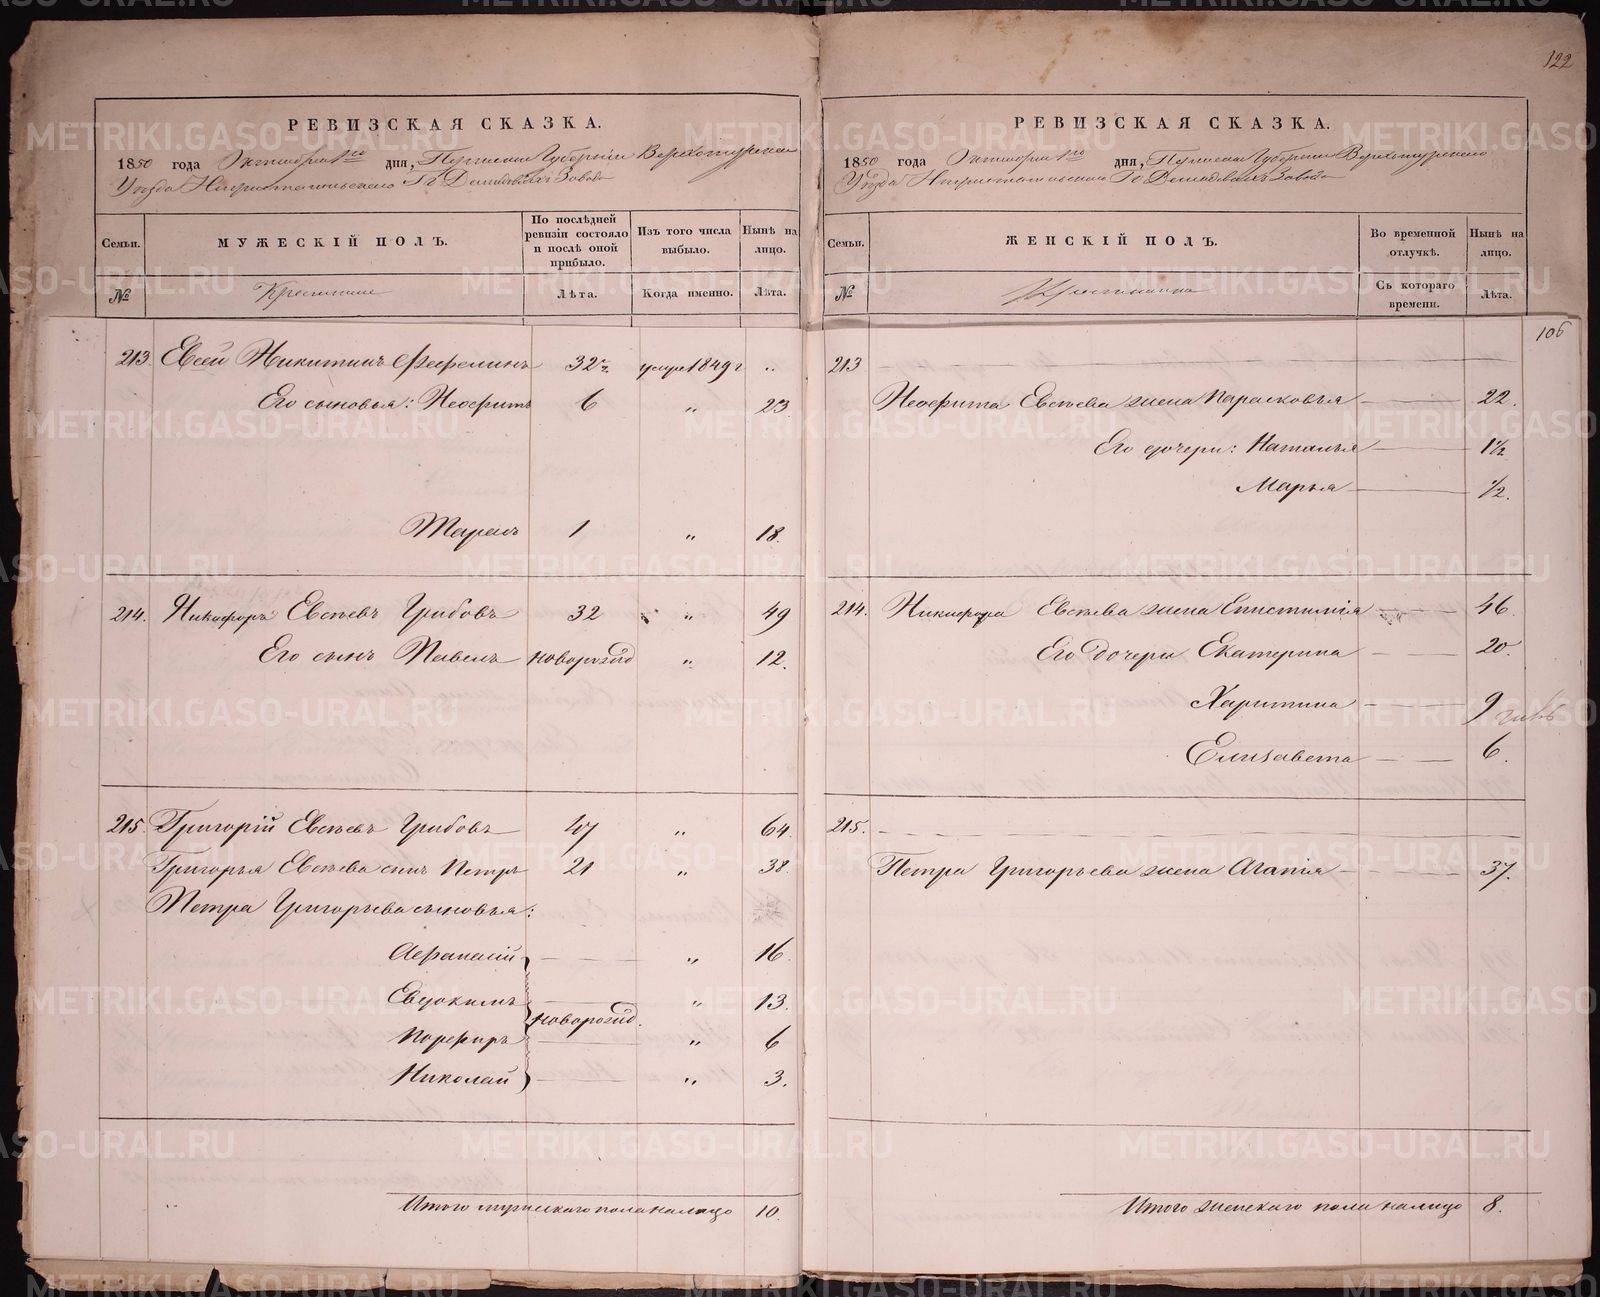 122
РЕВИЗСКАЯ СКАЗКА.
1850 года Октября 1го дня, Пермской Губернiи Верхотурскаго
Уѣзда Гг Демидовыхъ Завода
Семьи. МУЖЕСКIЙ ПОЛЪ. По послѣдней ревизiи состояло и послѣ оной прибыло. Изъ того числа выбыло. Нынѣ на лицо.
№ Крестьяне Лѣта. Когда именно. Лѣта.
213. Евсей Никитинъ 32 1849 г „
Его сыновья: Неофитъ 6 „ 23
Тарасъ 1 „ 18.
214. Никифоръ Евсѣевъ Грибовъ 32 „ 49
Его сынъ Павелъ новорожд „ 12.
215. Григорiй Евсѣевъ Грибовъ 47 „ 64.
Григорья Евсѣева сынъ Петръ 21 „ 38.
Петра Григорьева сыновья:
Афанасiй „ 16.
Евдокимъ „ 13.
новорожд.
Порфиръ „ 6
Николай „ 3.
Итого мужескаго пола налицо 10.
РЕВИЗСКАЯ СКАЗКА.
1850 года Октября 1го дня, Пермской Губернiи Верхотурскаго
Уѣзда Гг Демидовыхъ Завода
Семьи. ЖЕНСКIЙ ПОЛЪ. Во временной отлучкѣ. Нынѣ на лицо.
№ Крестьянки Съ котораго времени. Лѣта.
106
213
Неофита Евсѣева жена Парасковья 22.
Его дочери: Наталья 1½
Марья ½.
214. Никифора Евсѣева жена Епистимiя 46.
Его дочери Екатерина 20.
Харитина 9
Елизавета 6.
215.
Петра Григорьева жена Агапiя 37.
Итого женскаго пола налицо 8.
METRIKI.GASO-URAL.RU